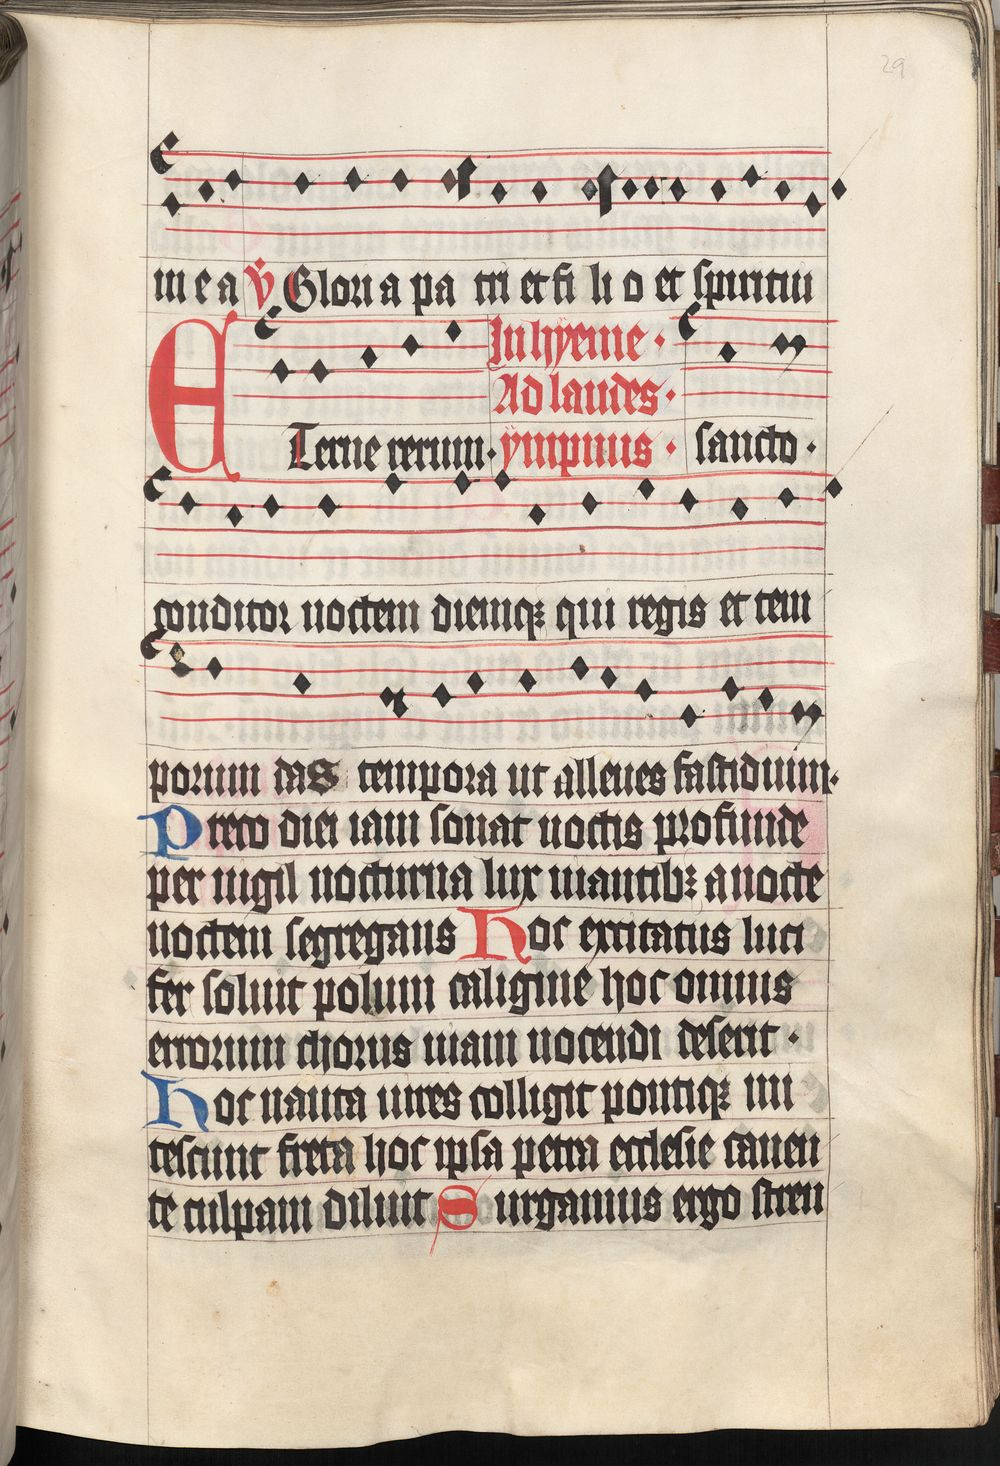 29
mea ℣ Gloria pa tri et fi li o et spiritui
In hÿeme ·
Ad laudes ·
ETerne rerum · ÿmpnus · sancto ·
conditor noctem diemqꝫ qui regis et tem
porum das tempora ut alleues fastidium ·
Preco diei iam sonat noctis profunde
per uigil nocturna lux uiantibꝫ a nocte
noctem segregans Hoc excitatus luci
fer soluit polum caligine hoc omnis
errorum chorus uiam nocendi deserit ·
Hoc nauta uires colligit pontiqꝫ mi
tescunt freta hoc ipsa petra ecclesie canen
te culpam diluit Surgamus ergo stren